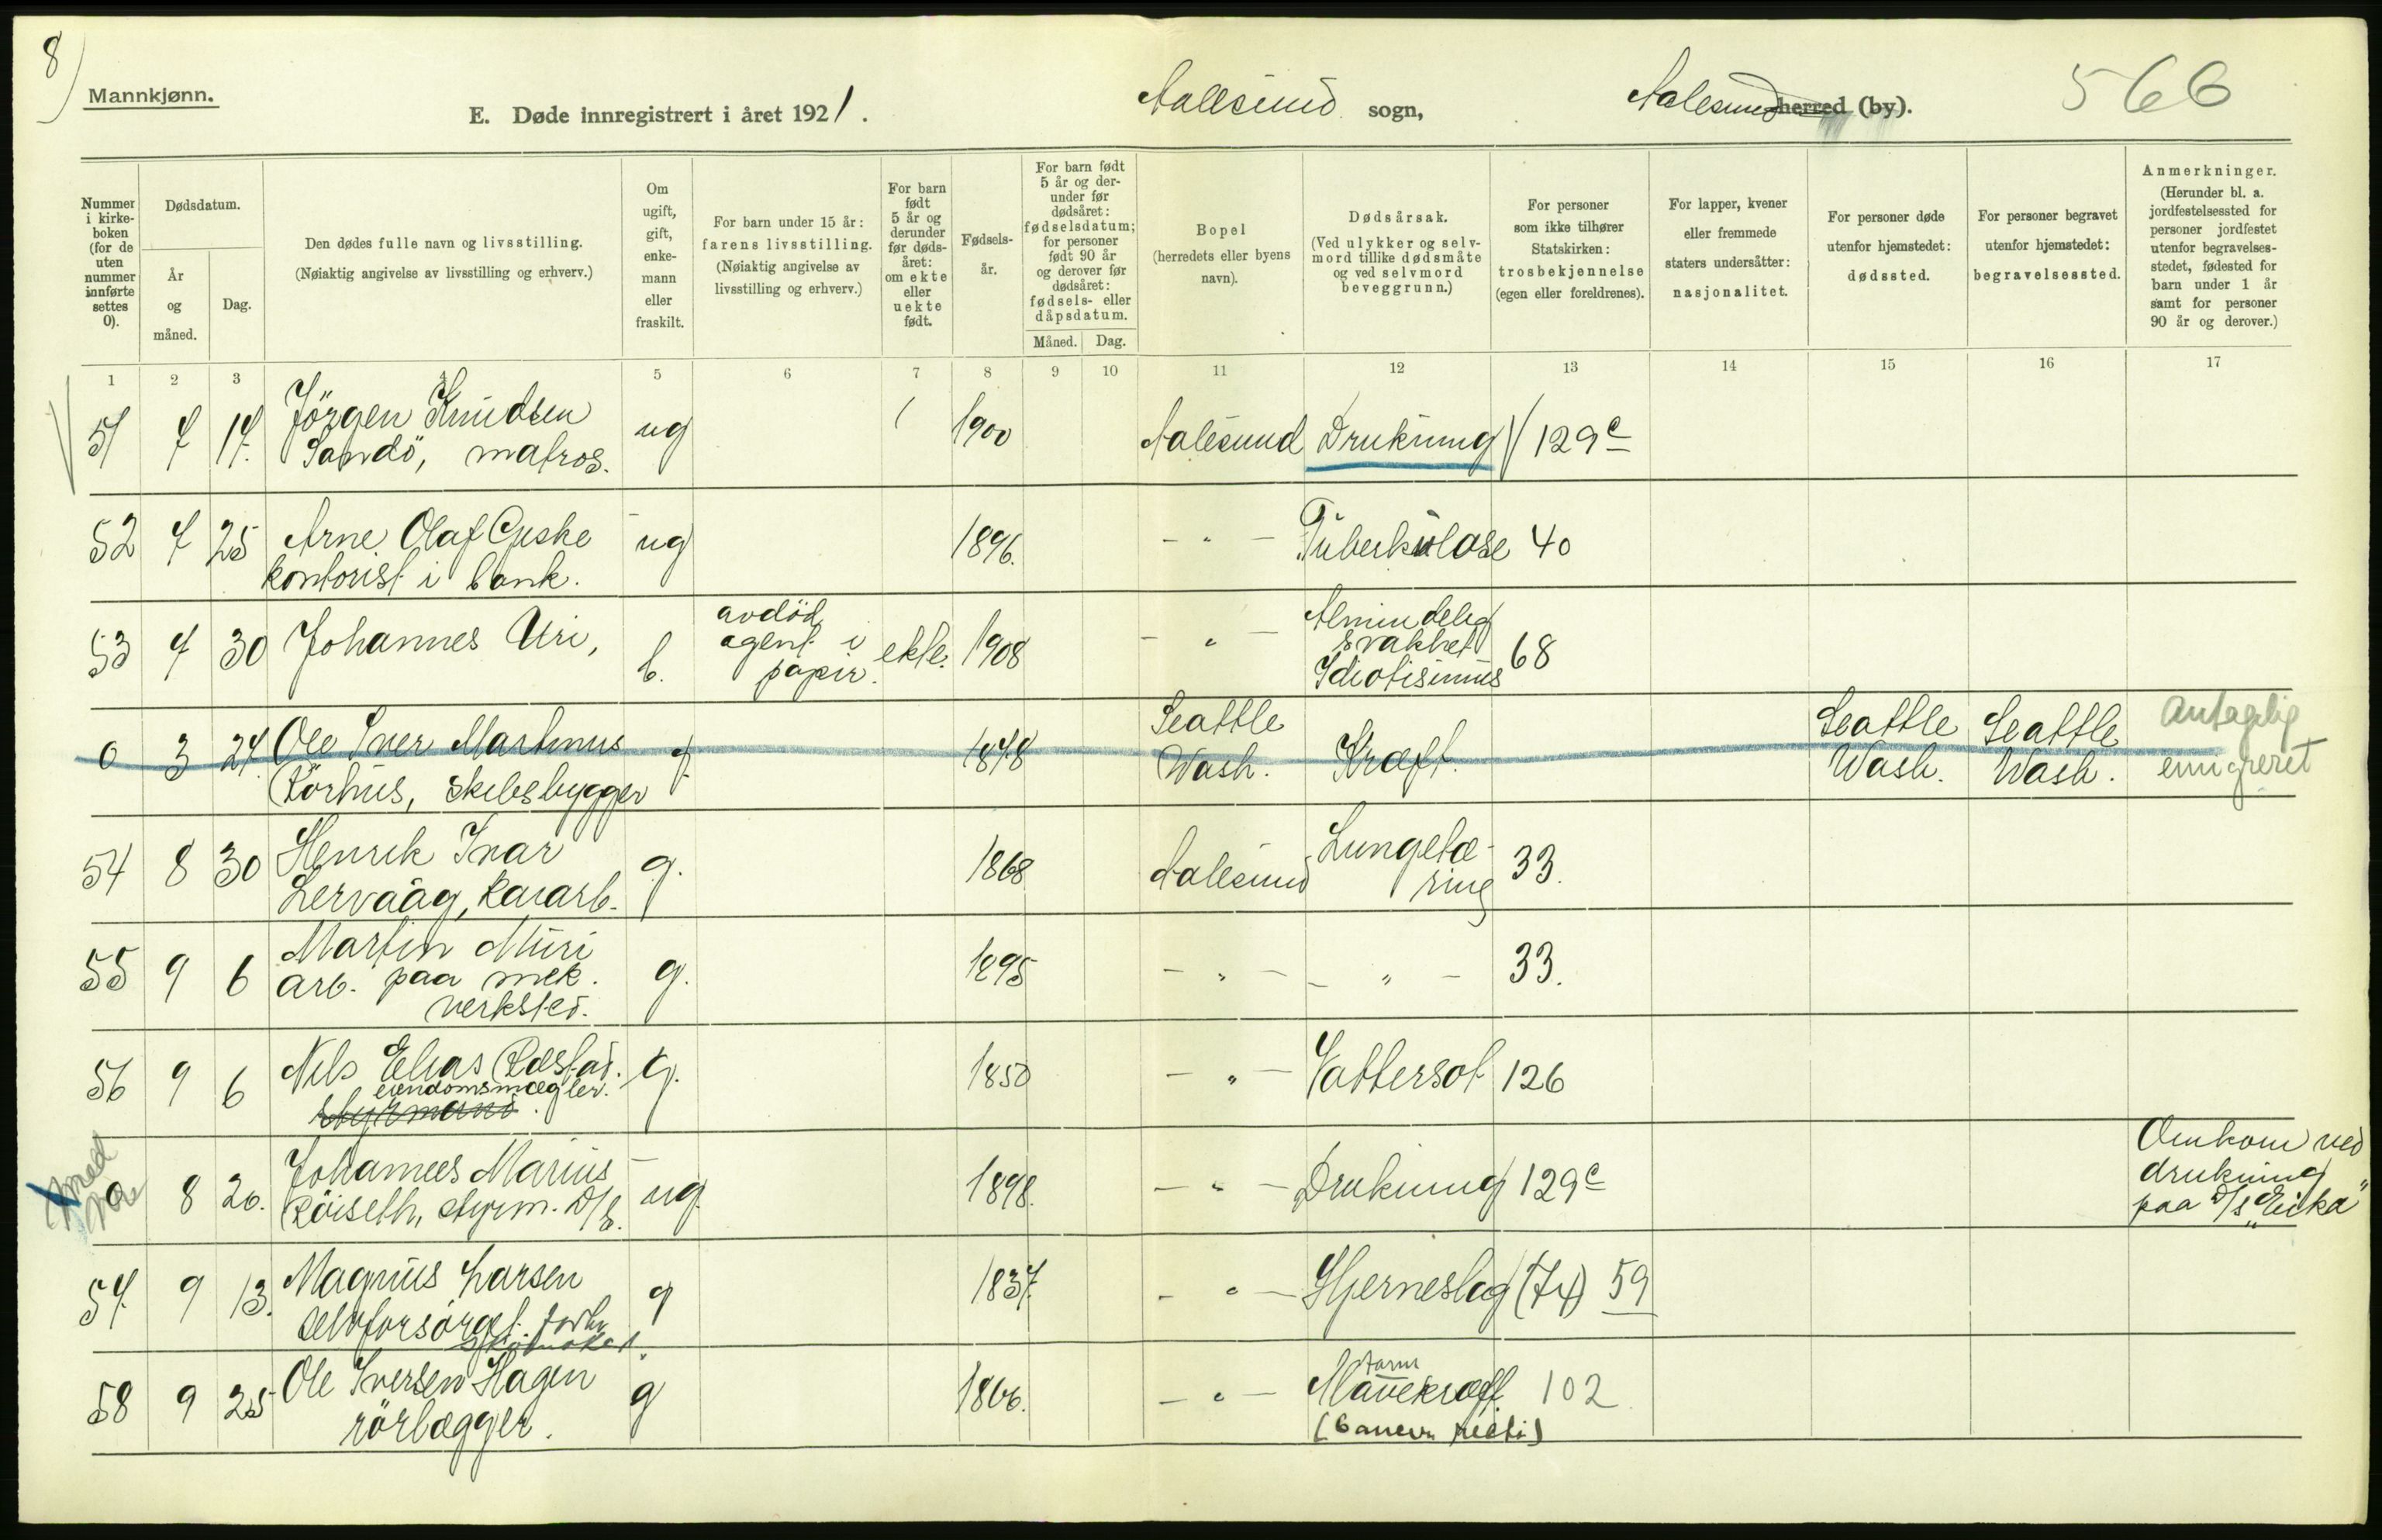 8)
Mannkjønn.
E. Døde innregistrert i året 1921.
Aalesund sogn,
Aalesund herred (by).
566
Nummer i kirke-boken (for de uten nummer innførte settes 0).
Dødsdatum.
År og måned.
Dag.
Den dødes fulle navn og livsstilling.
(Nøiaktig angivelse av livsstilling og erhverv.)
Om ugift, gift, enke-mann eller fraskilt.
For barn under 15 år: farens livsstilling. (Nøiaktig angivelse av livsstilling og erhverv.)
For barn født 5 år og derunder før døds-året: om ekte eller uekte født.
Fødsels-år.
For barn født 5 år og der-under før dødsåret: fødselsdatum; for personer født 90 år og derover før dødsåret: fødsels- eller dåpsdatum.
Måned. Dag.
Bopel (herredets eller byens navn).
Dødsårsak. (Ved ulykker og selv-mord tillike dødsmåte og ved selvmord beveggrunn.)
For personer som ikke tilhører Statskirken: trosbekjennelse (egen eller foreldrenes).
For lapper, kvener eller fremmede staters undersåtter: nasjonalitet.
For personer døde utenfor hjemstedet: dødssted.
For personer begravet utenfor hjemstedet: begravelsessted.
Anmerkninger. (Herunder bl. a. jordfestelsessted for personer jordfestet utenfor begravelses-stedet, fødested for barn under 1 år samt for personer 90 år og derover.)
1 2 3 4 5 6 7 8 9 10 11 12 13 14 15 16 17
51 7 17. Jörgen Knudsen ug 1900 Aalesund Drukning 129c
Sandö, matros.
52 7 25 Arne Olaf Giske ug 1896. - " - Tuberkulose 40
kontorist i bank.
53 7 30 Johannes Uri, b. avdöd agent i papir. ekte. 1908 - " - Almindelig svakhet Idiotismus 68
0 3 24. Ole Iver Martinus g. 1848 Seattle Wash. Kræft. Seattle Wash. Seattle Wash. Antagelig emigreret
Rörhus, skibsbygger
54 8 30 Henrik Ivar g. 1868 Aalesund Lungetæ-ring 33.
Lervaag, kaiarb.
55 9 6 Martin Muri g. 1895 - " - - " - 33.
arb. paa mek.
verksted.
56 9 6 Nils Elias Ræstad. g. 1850 - " - Vattersot 126
eiendomsmægler.
styrmand.
0 8 20. Johannes Marius ug. 1898. - " - Drukning 129c Omkom ved drukning paa D/s "Eika"
Röiseth, styrm. D/S.
57. 9 13. Magnus Larsen g 1837. - " - Hjerneslag (74) 59
selvforsörget. forhv.
58 9 25 Ole Iversen Hagen g 1866. - " - Mavekræft. 102
tarm
rörlægger.
(cancer recti)